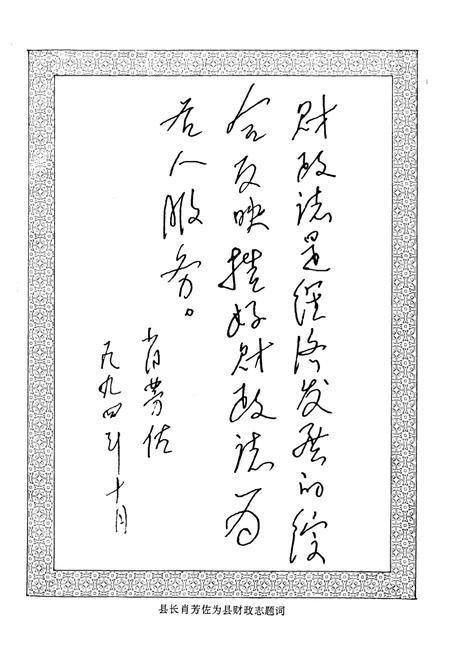 财政誌是经济发展的综
合反映撰好财政誌为
后人服务。
肖芳佐
一九九四年十月
县长肖芳佐为县财政志题词